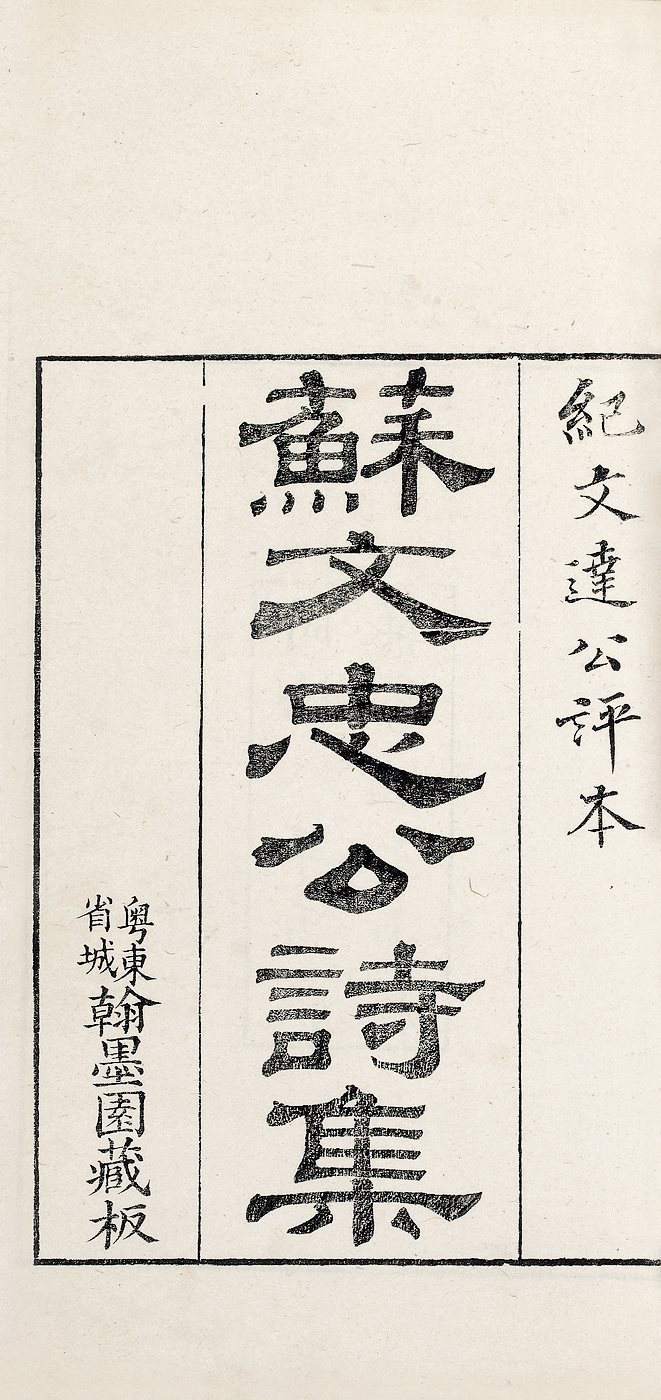 紀文達公評本
蘇文忠公詩集
粵東省城翰墨園藏板